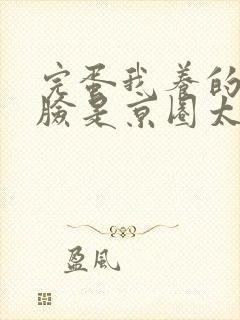 完蛋我养的
脸是京圈太
盈風